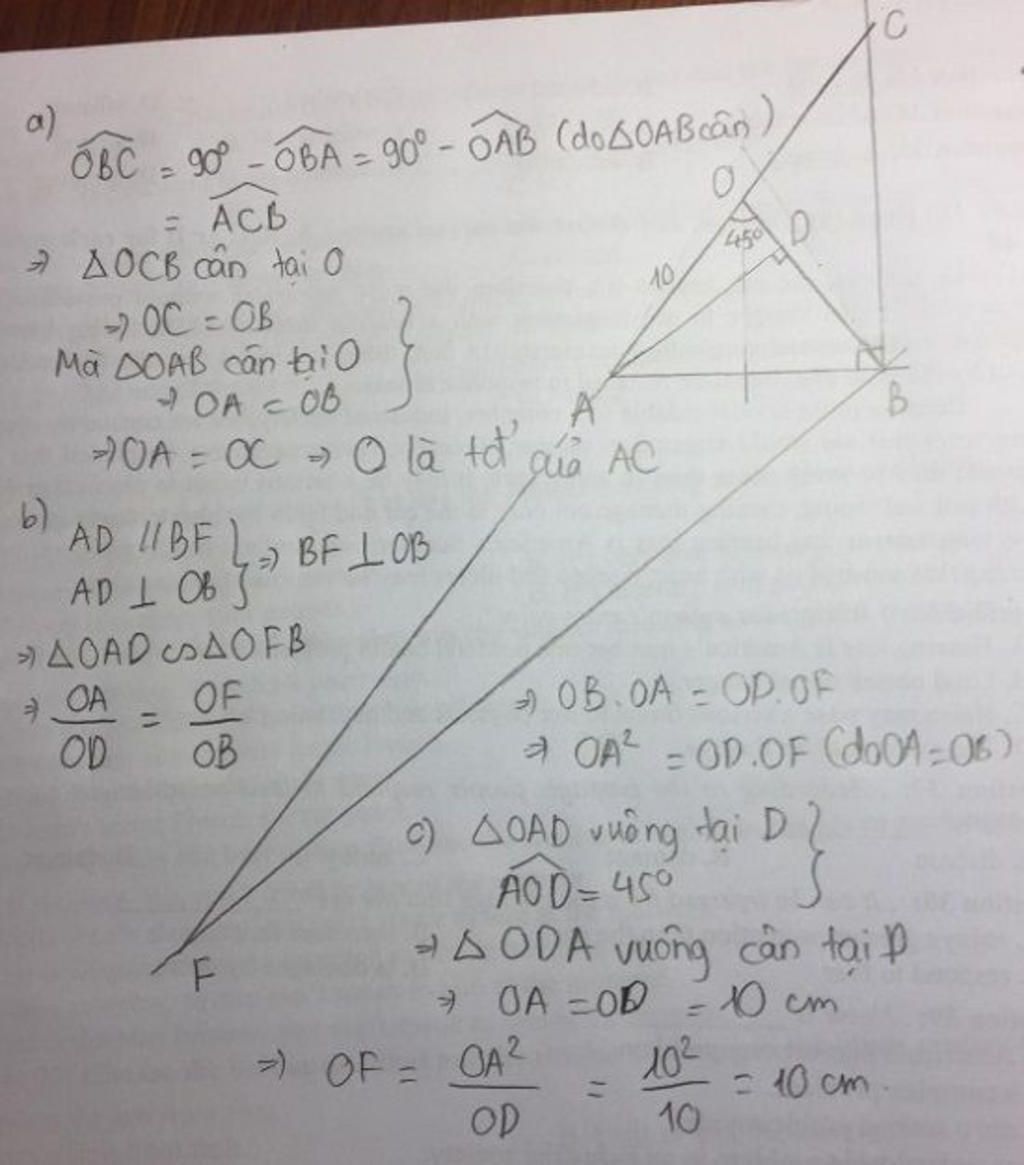 a)
OBC = 90° - OBA = 90° - OAB (do ΔOAB cân)
= ACB
⇒ ΔOCB cân tại O
⇒ OC = OB
Mà ΔOAB cân tại O
⇒ OA = OB
⇒ OA = OC ⇒ O là tđ' của AC
b)
AD // BF
AD ⊥ OB
} ⇒ BF ⊥ OB
⇒ ΔOAD ∽ ΔOFB
⇒ OA/OD = OF/OB
⇒ OB.OA = OD.OF
⇒ OA² = OD.OF (do OA=OB)
c) ΔOAD vuông tại D
AOD = 45°
⇒ Δ ODA vuông cân tại D
⇒ OA = OD = 10 cm
⇒ OF = OA²/OD = 10²/10 = 10 cm.
C
O
45°
D
10
A
B
F